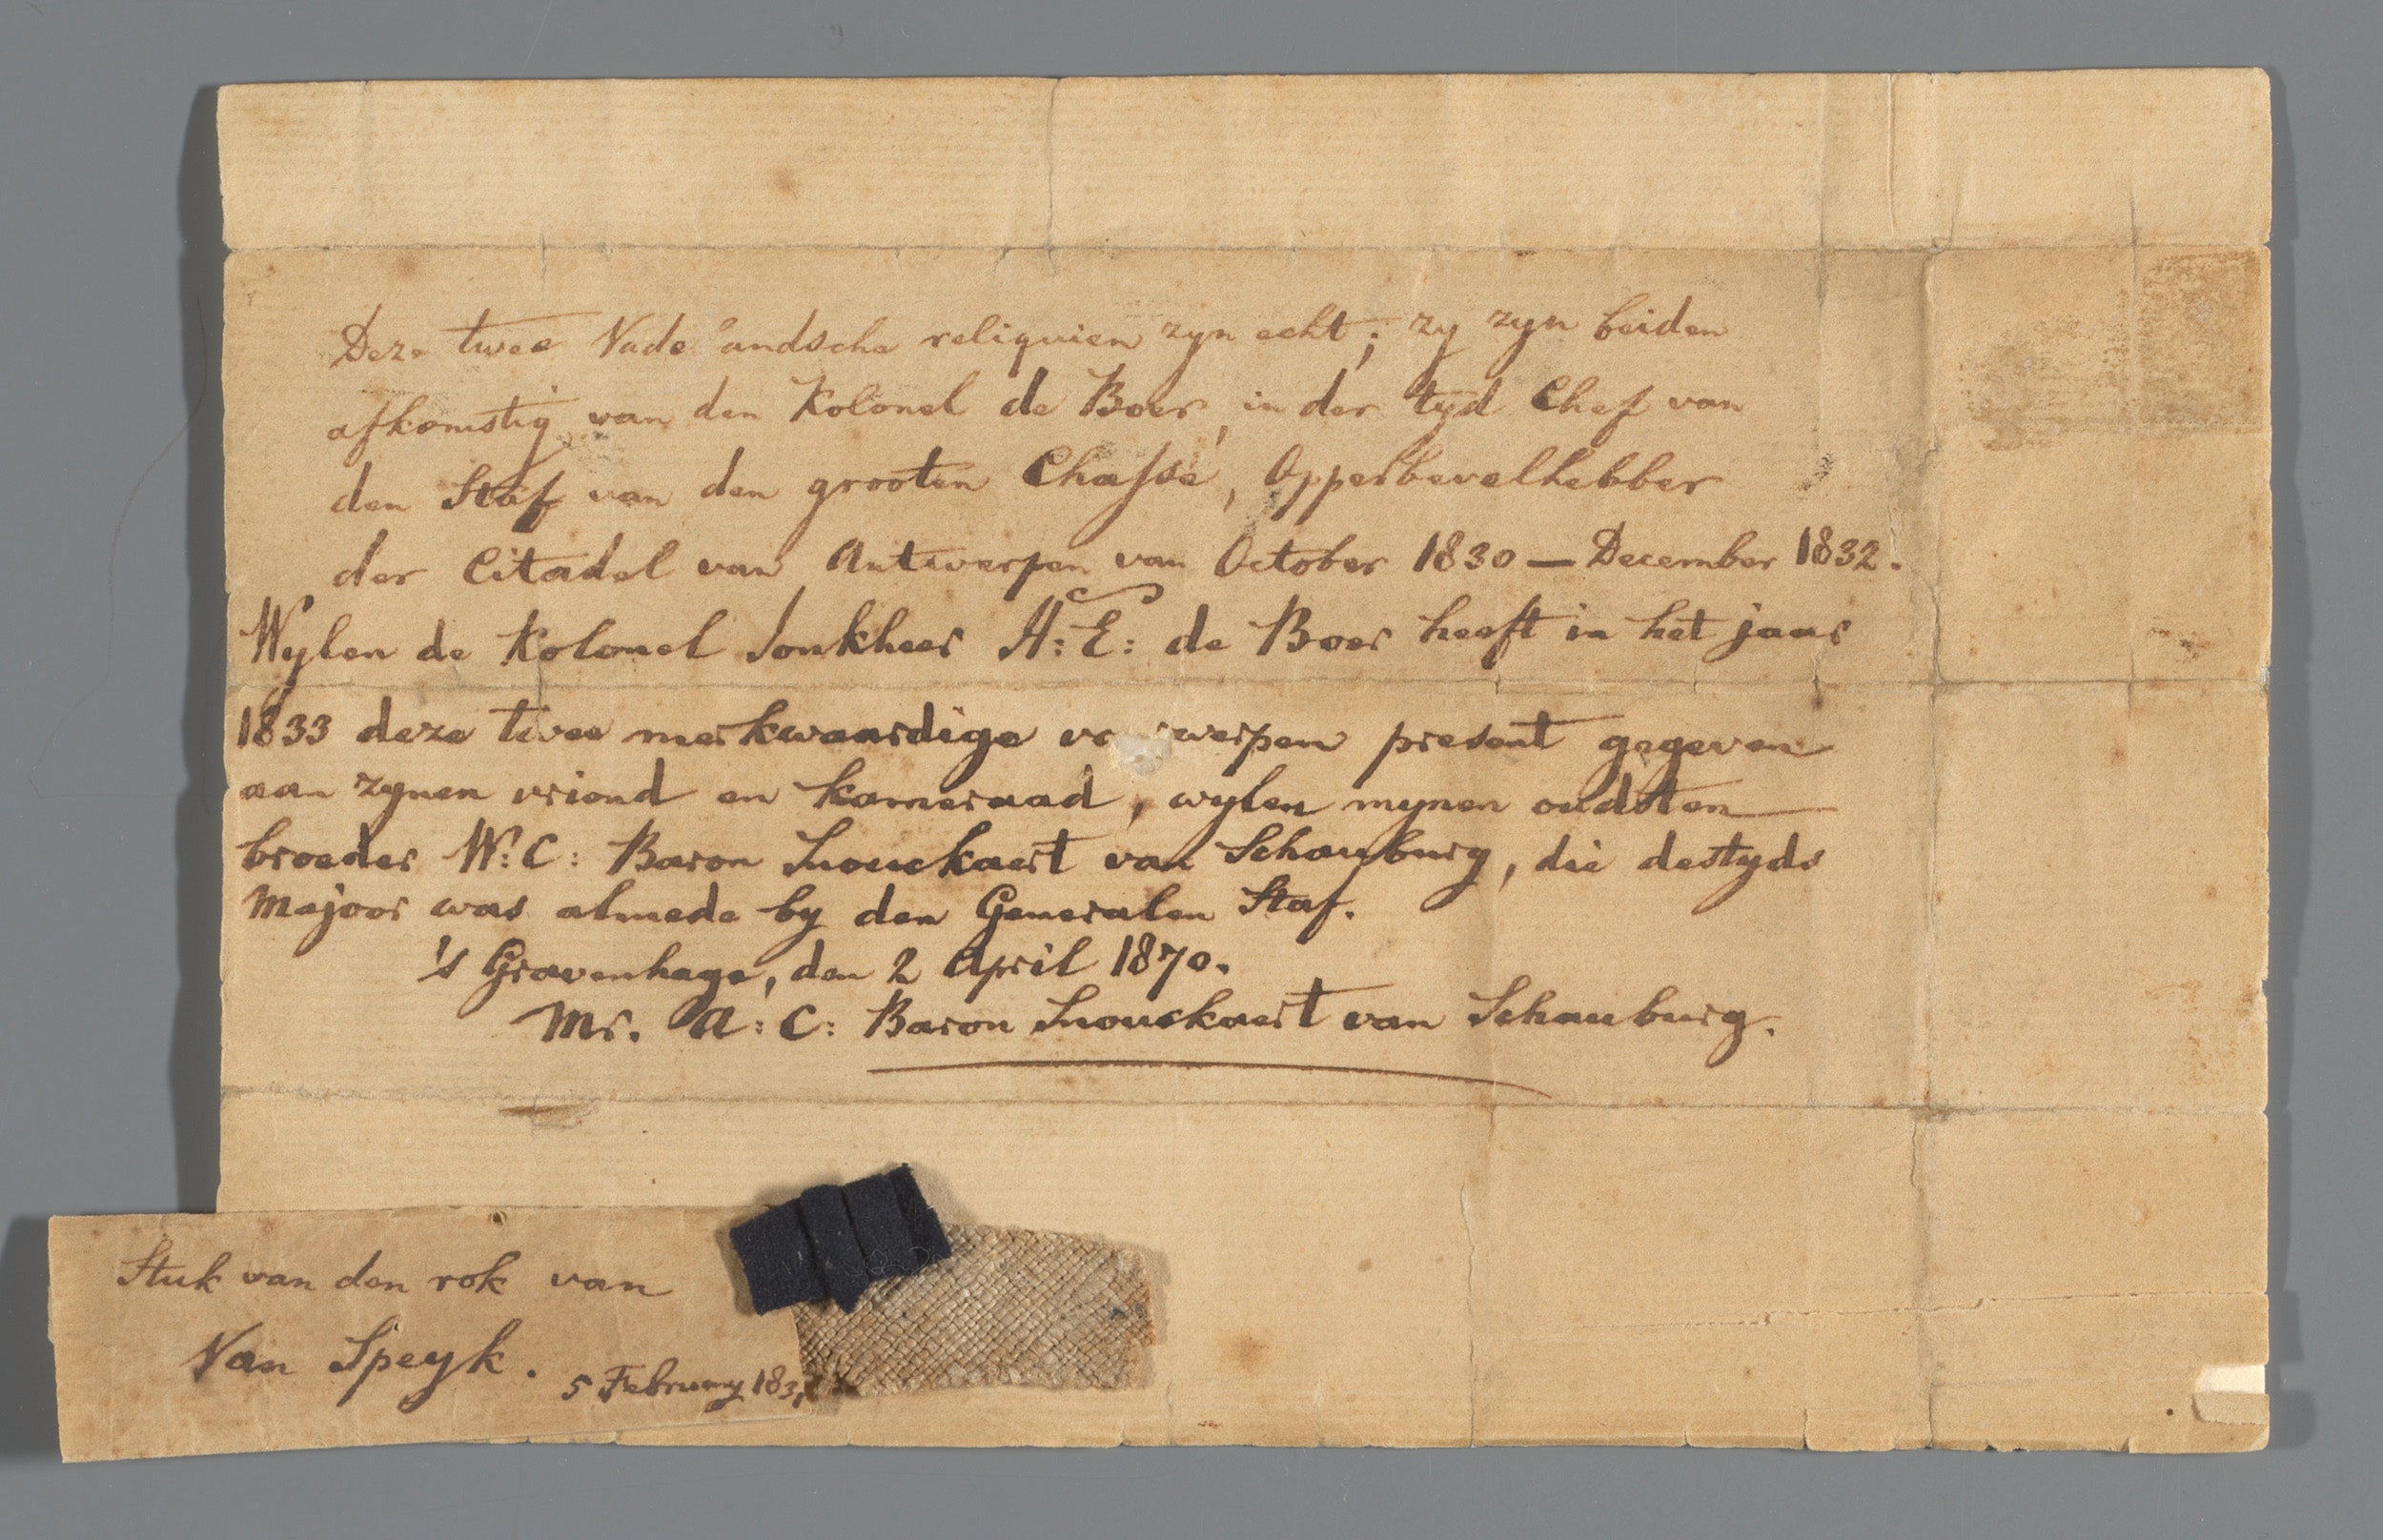 Deze twee Vade landsche reliquien zyn echt; zy zyn beiden
afkomstig van den Kolonel de Boer, in der tyd Chef van
den Staf van den grooten Chassé, Opperbevelhebber
der Citadel van Antwerpen van October 1830 — December 1832.
Wylen de Kolonel Jonkheer H: E: de Boer heeft in het jaar
1833 deze twee merkwaardige voorwerpen present gegeven
aan zynen vriend en kameraad, wylen mynen oudsten
broeder W: C: Baron Snouckaert van Schauburg, die destyds
Majoor was almede by den Generalen Staf.
's Gravenhage, den 2 April 1870.
Mr. A: C: Baron Snouckaert van Schauburg.
Stuk van den rok van
Van Speyk.
5 February